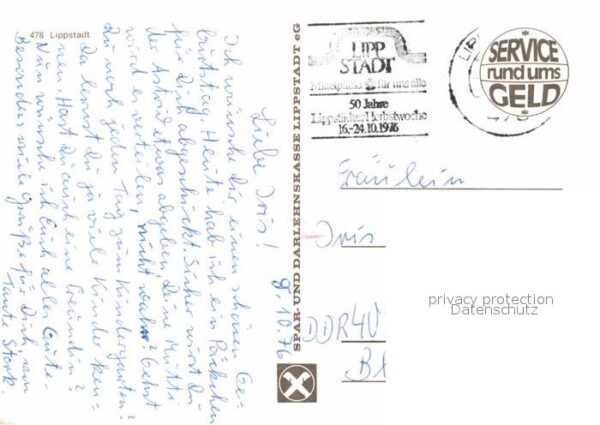 478 Lippstadt
LIPP
STADT
Mittelpunkt für uns alle
50 Jahre
Lippstädter Herbstwoche
16.-24.10.1976
LIP
478
SERVICE
rund ums
GELD
SPAR- UND DARLEHNSKASSE LIPPSTADT eG
8.10.76
Liebe Iris!
Ich wünsche Dir einen schönen Ge-
burtstag. Heute hab ich ein Päckchen
für Dich abgeschickt. Sicher wirst Du
der Astrid etwas abgeben, Deine Mutti
wird es verteilen, nicht wahr? Gehst
Du nun jeden Tag zum Kindergarten?
Da lernst Du ja viele Kinder ken-
nen. Hast Du auch eine Freundin?
Nun wünsche ich Euch alles Gute.
Besonders viele Grüße für Dich von
Tante Stork.
Fräulein
Iris
DDR 40
Bl
privacy protection
Datenschutz